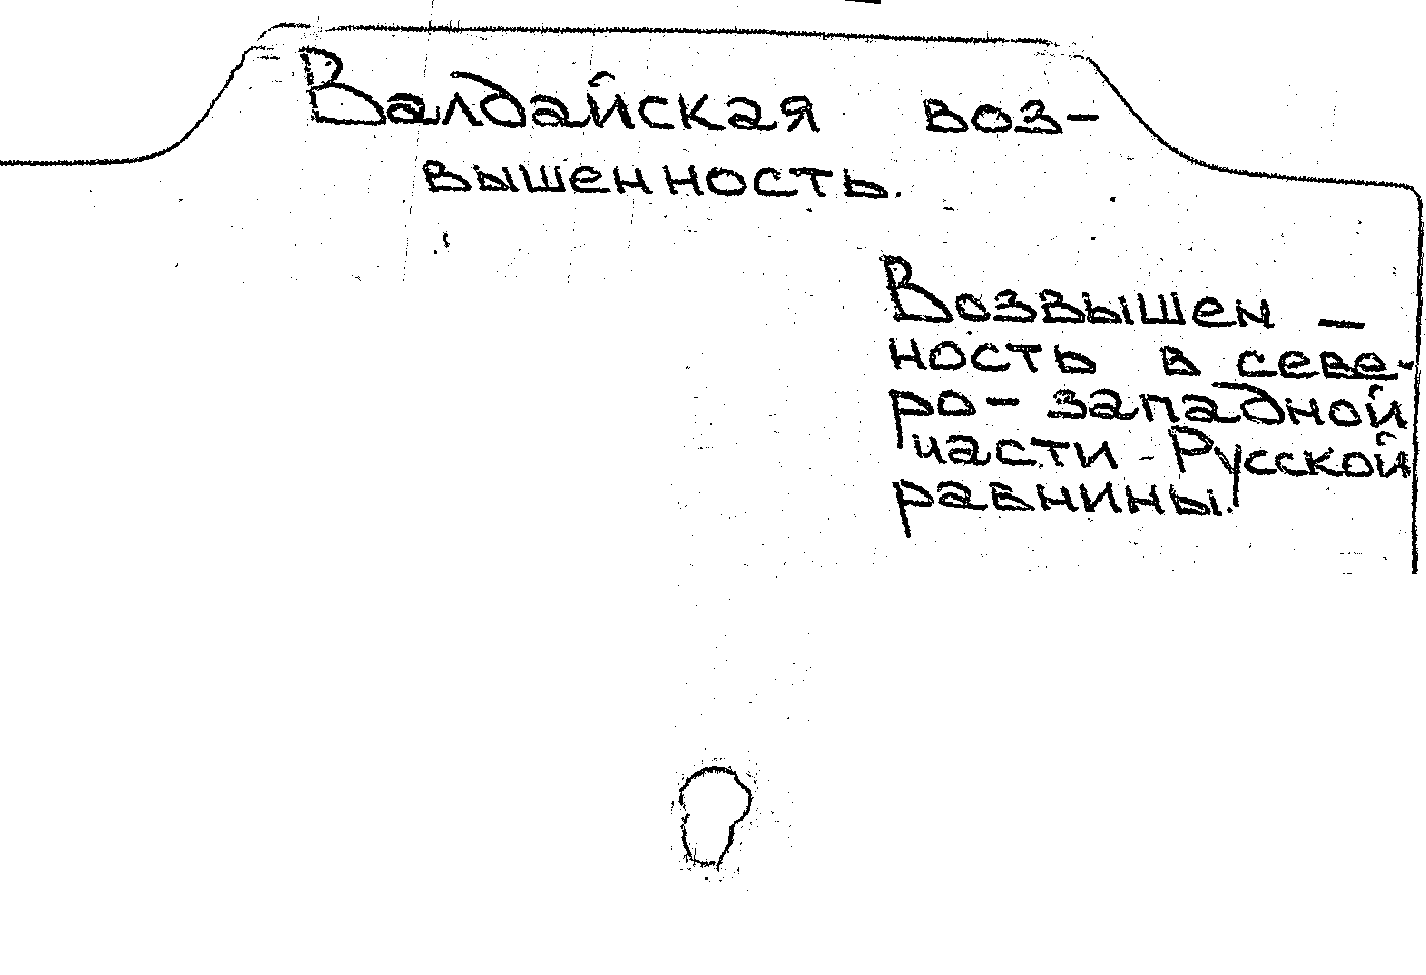 Валдайская воз-
вышенность.
Возвышен-
ность в севе-
ро-западной
части Русской
равнины.